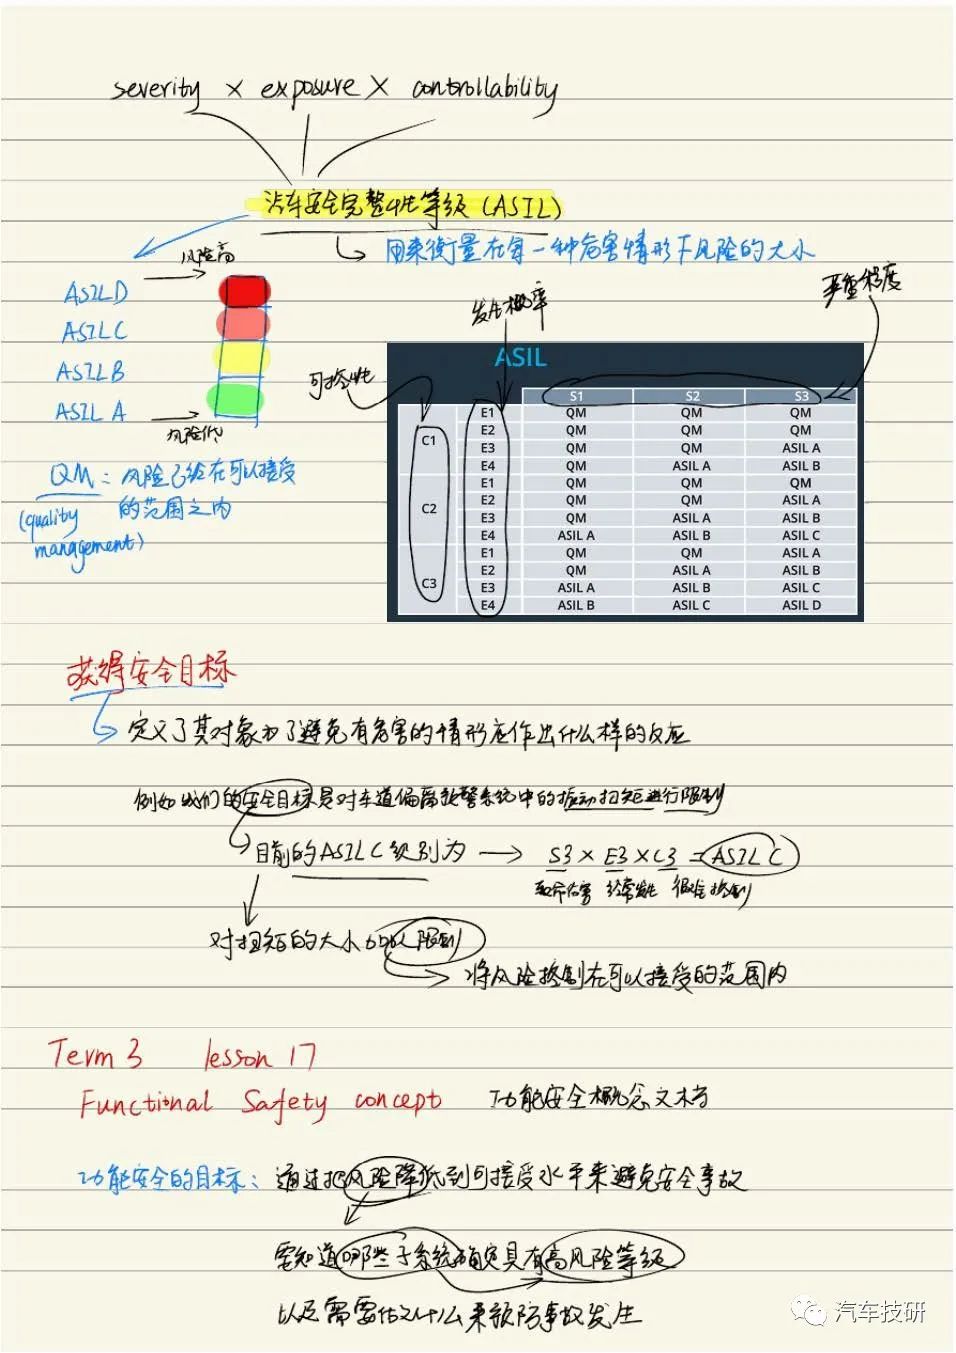 severity × exposure × controllability
汽车安全完整性等级 (ASIL)
用来衡量在每一种危害情形下风险的大小
风险高
ASIL D
ASIL C
ASIL B
ASIL A
风险低
QM: 风险已经在可以接受
的范围之内
(quality
management)
发生概率
严重程度
可控性
ASIL
S1 S2 S3
C1 E1 QM QM QM
E2 QM QM QM
E3 QM QM ASIL A
E4 QM ASIL A ASIL B
C2 E1 QM QM QM
E2 QM QM ASIL A
E3 QM ASIL A ASIL B
E4 ASIL A ASIL B ASIL C
C3 E1 QM QM ASIL A
E2 QM ASIL A ASIL B
E3 ASIL A ASIL B ASIL C
E4 ASIL B ASIL C ASIL D
获得安全目标
定义了某对象为了避免有危害的情形应作出什么样的反应
例如我们的安全目标是对车道偏离报警系统中的振动扭矩进行限制
目前的ASIL C级别为 → S3 × E3 × C3 = ASIL C
致命伤害 经常发生 很难控制
对扭矩的大小加以限制
将风险控制在可以接受的范围内
Term 3 lesson 17
Functional Safety concept 功能安全概念文档
功能安全的目标: 通过把风险降低到可接受水平来避免安全事故
要知道哪些子系统确定具有高风险等级
以及需要做什么来预防事故发生
汽车技研